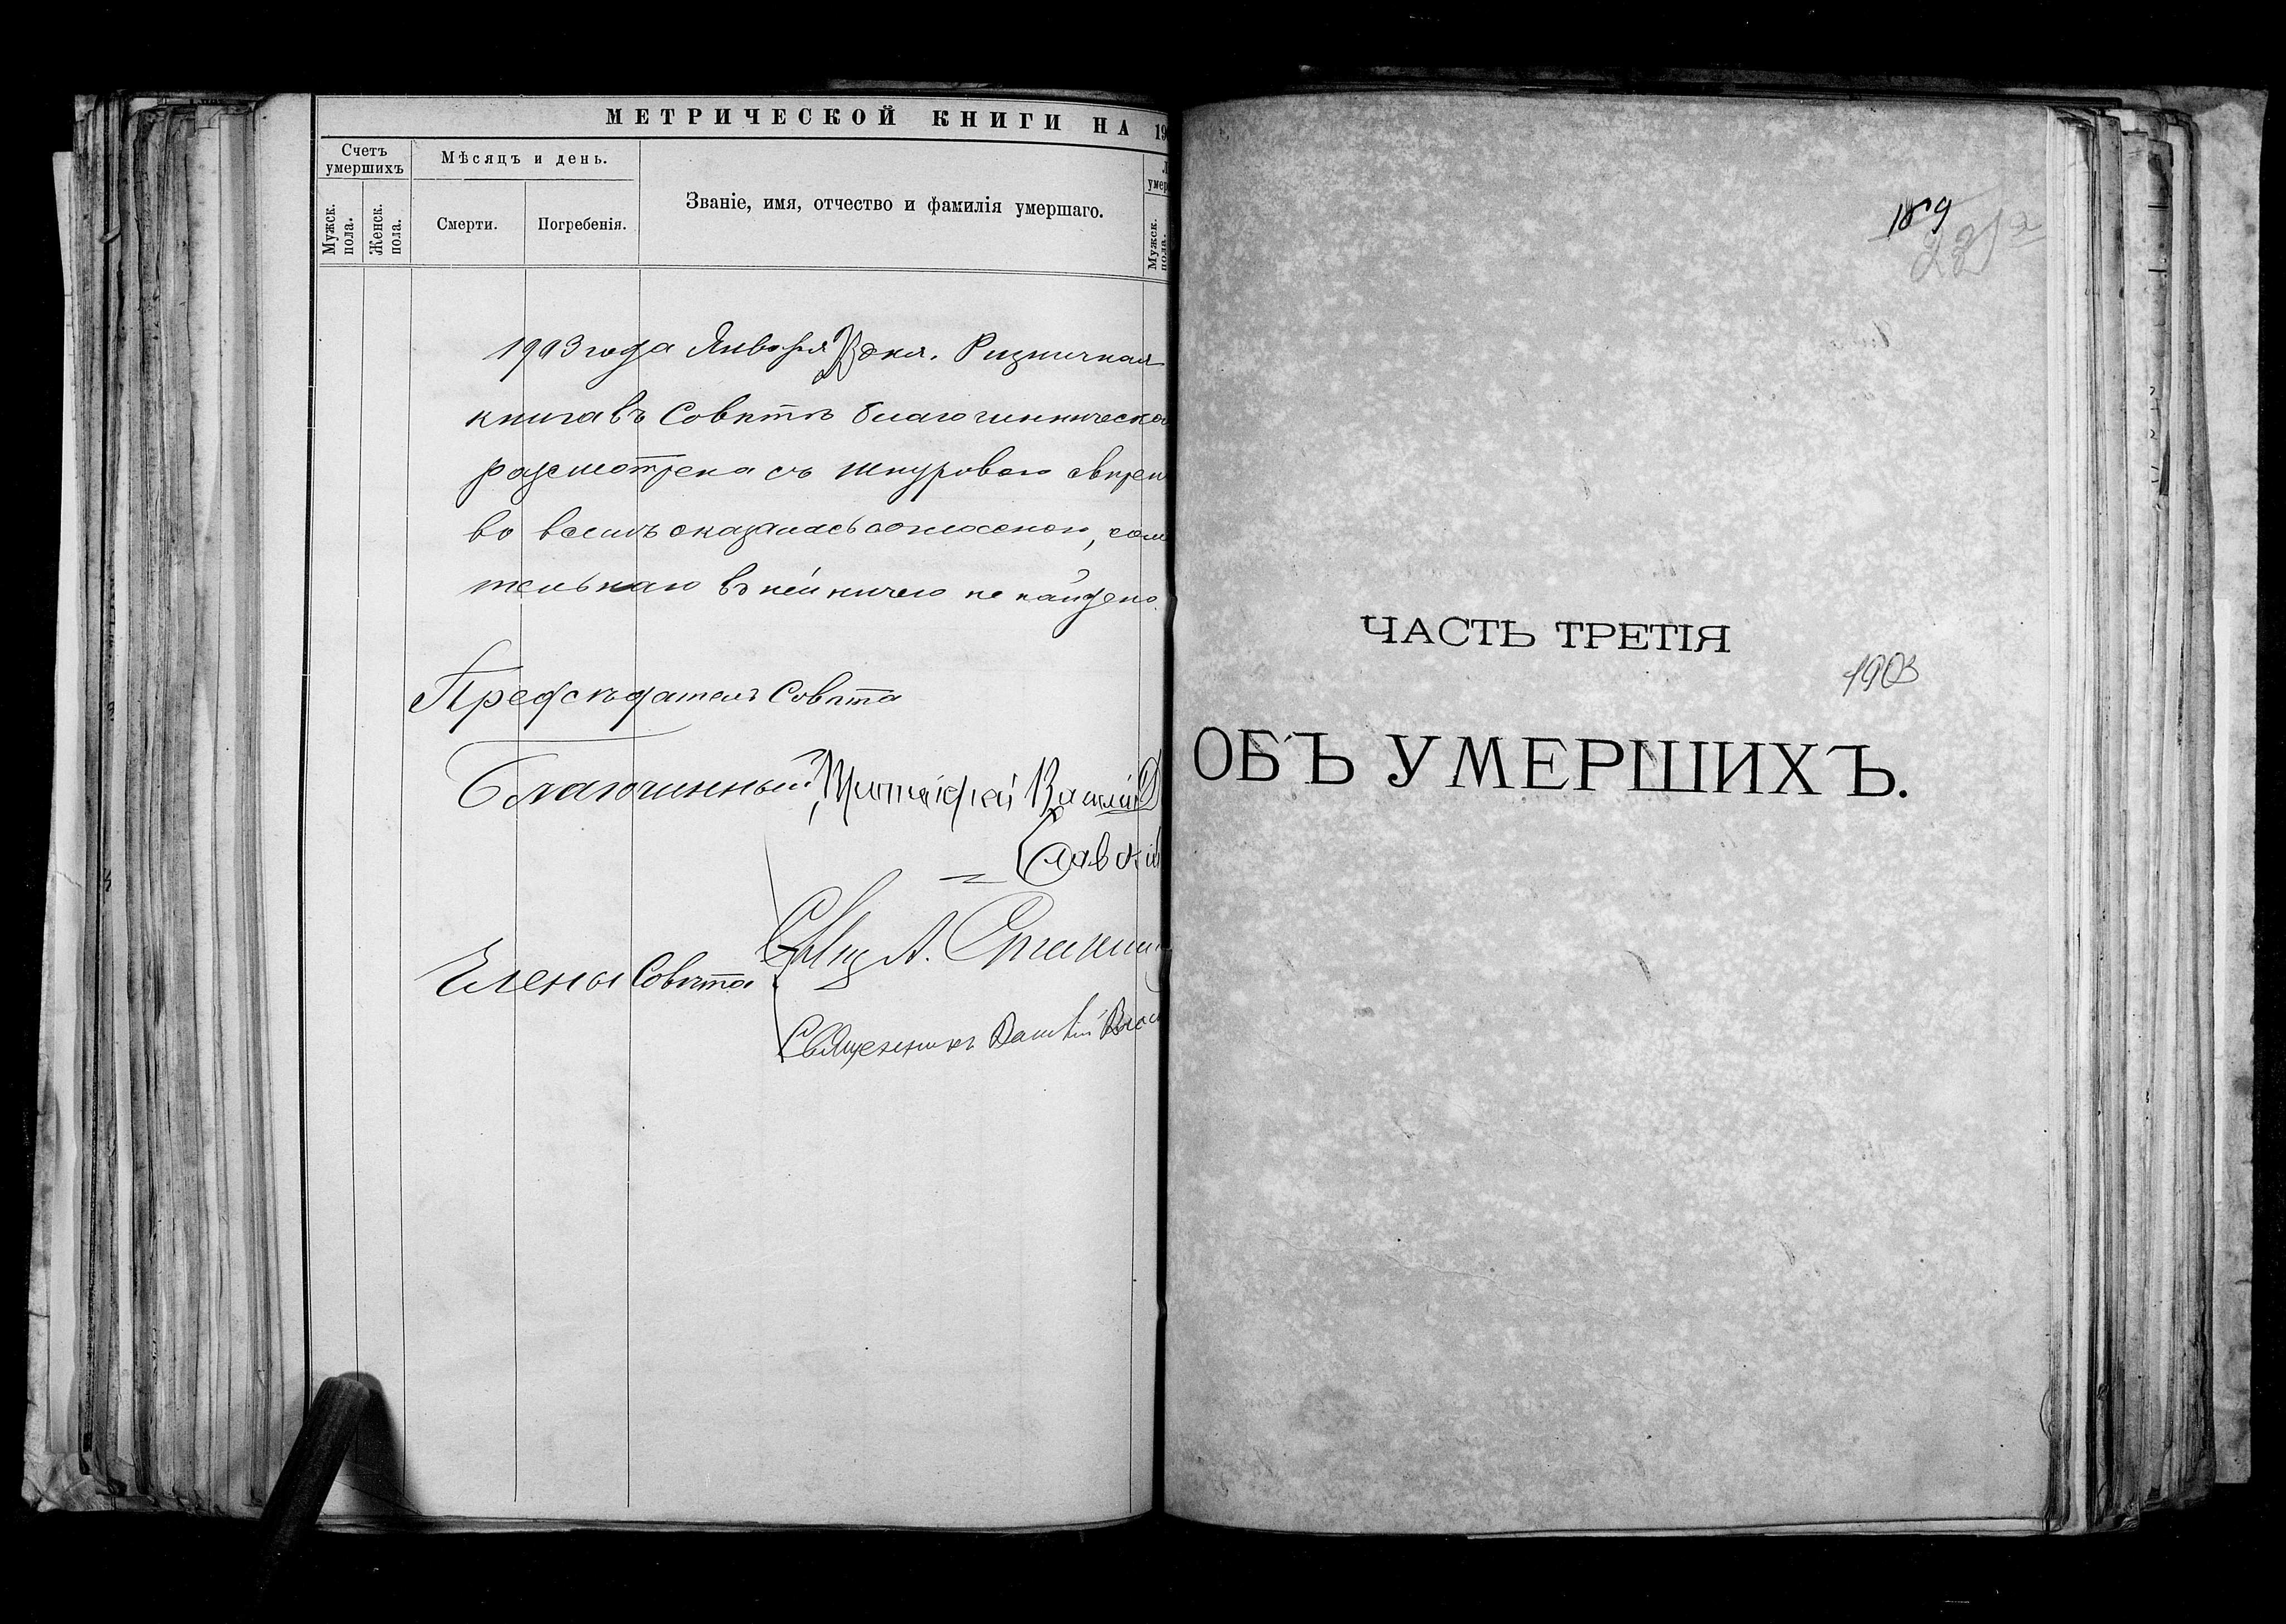 МЕТРИЧЕСКОЙ КНИГИ НА 19
Счетъ умершихъ
Мѣсяцъ и день.
Званіе, имя, отчество и фамилія умершаго.
умер
Мужск. пола.
Женск. пола.
Смерти.
Погребенія.
Мужск. пола.
1903 года Января дня. Ризничная
книга въ Совѣтѣ благочинническо
разсмотрена съ шнуровою свѣрен
во всемъ оказалась согласною, сом
тельнаго въ ней ничего не найдено.
Предсѣдатель Совѣта
Благочинный, Протоіерей Василій
Славскій
Члены Совѣта
Свящ А.
Священникъ
189
ЧАСТЬ ТРЕТІЯ
1903
ОБЪ УМЕРШИХЪ.